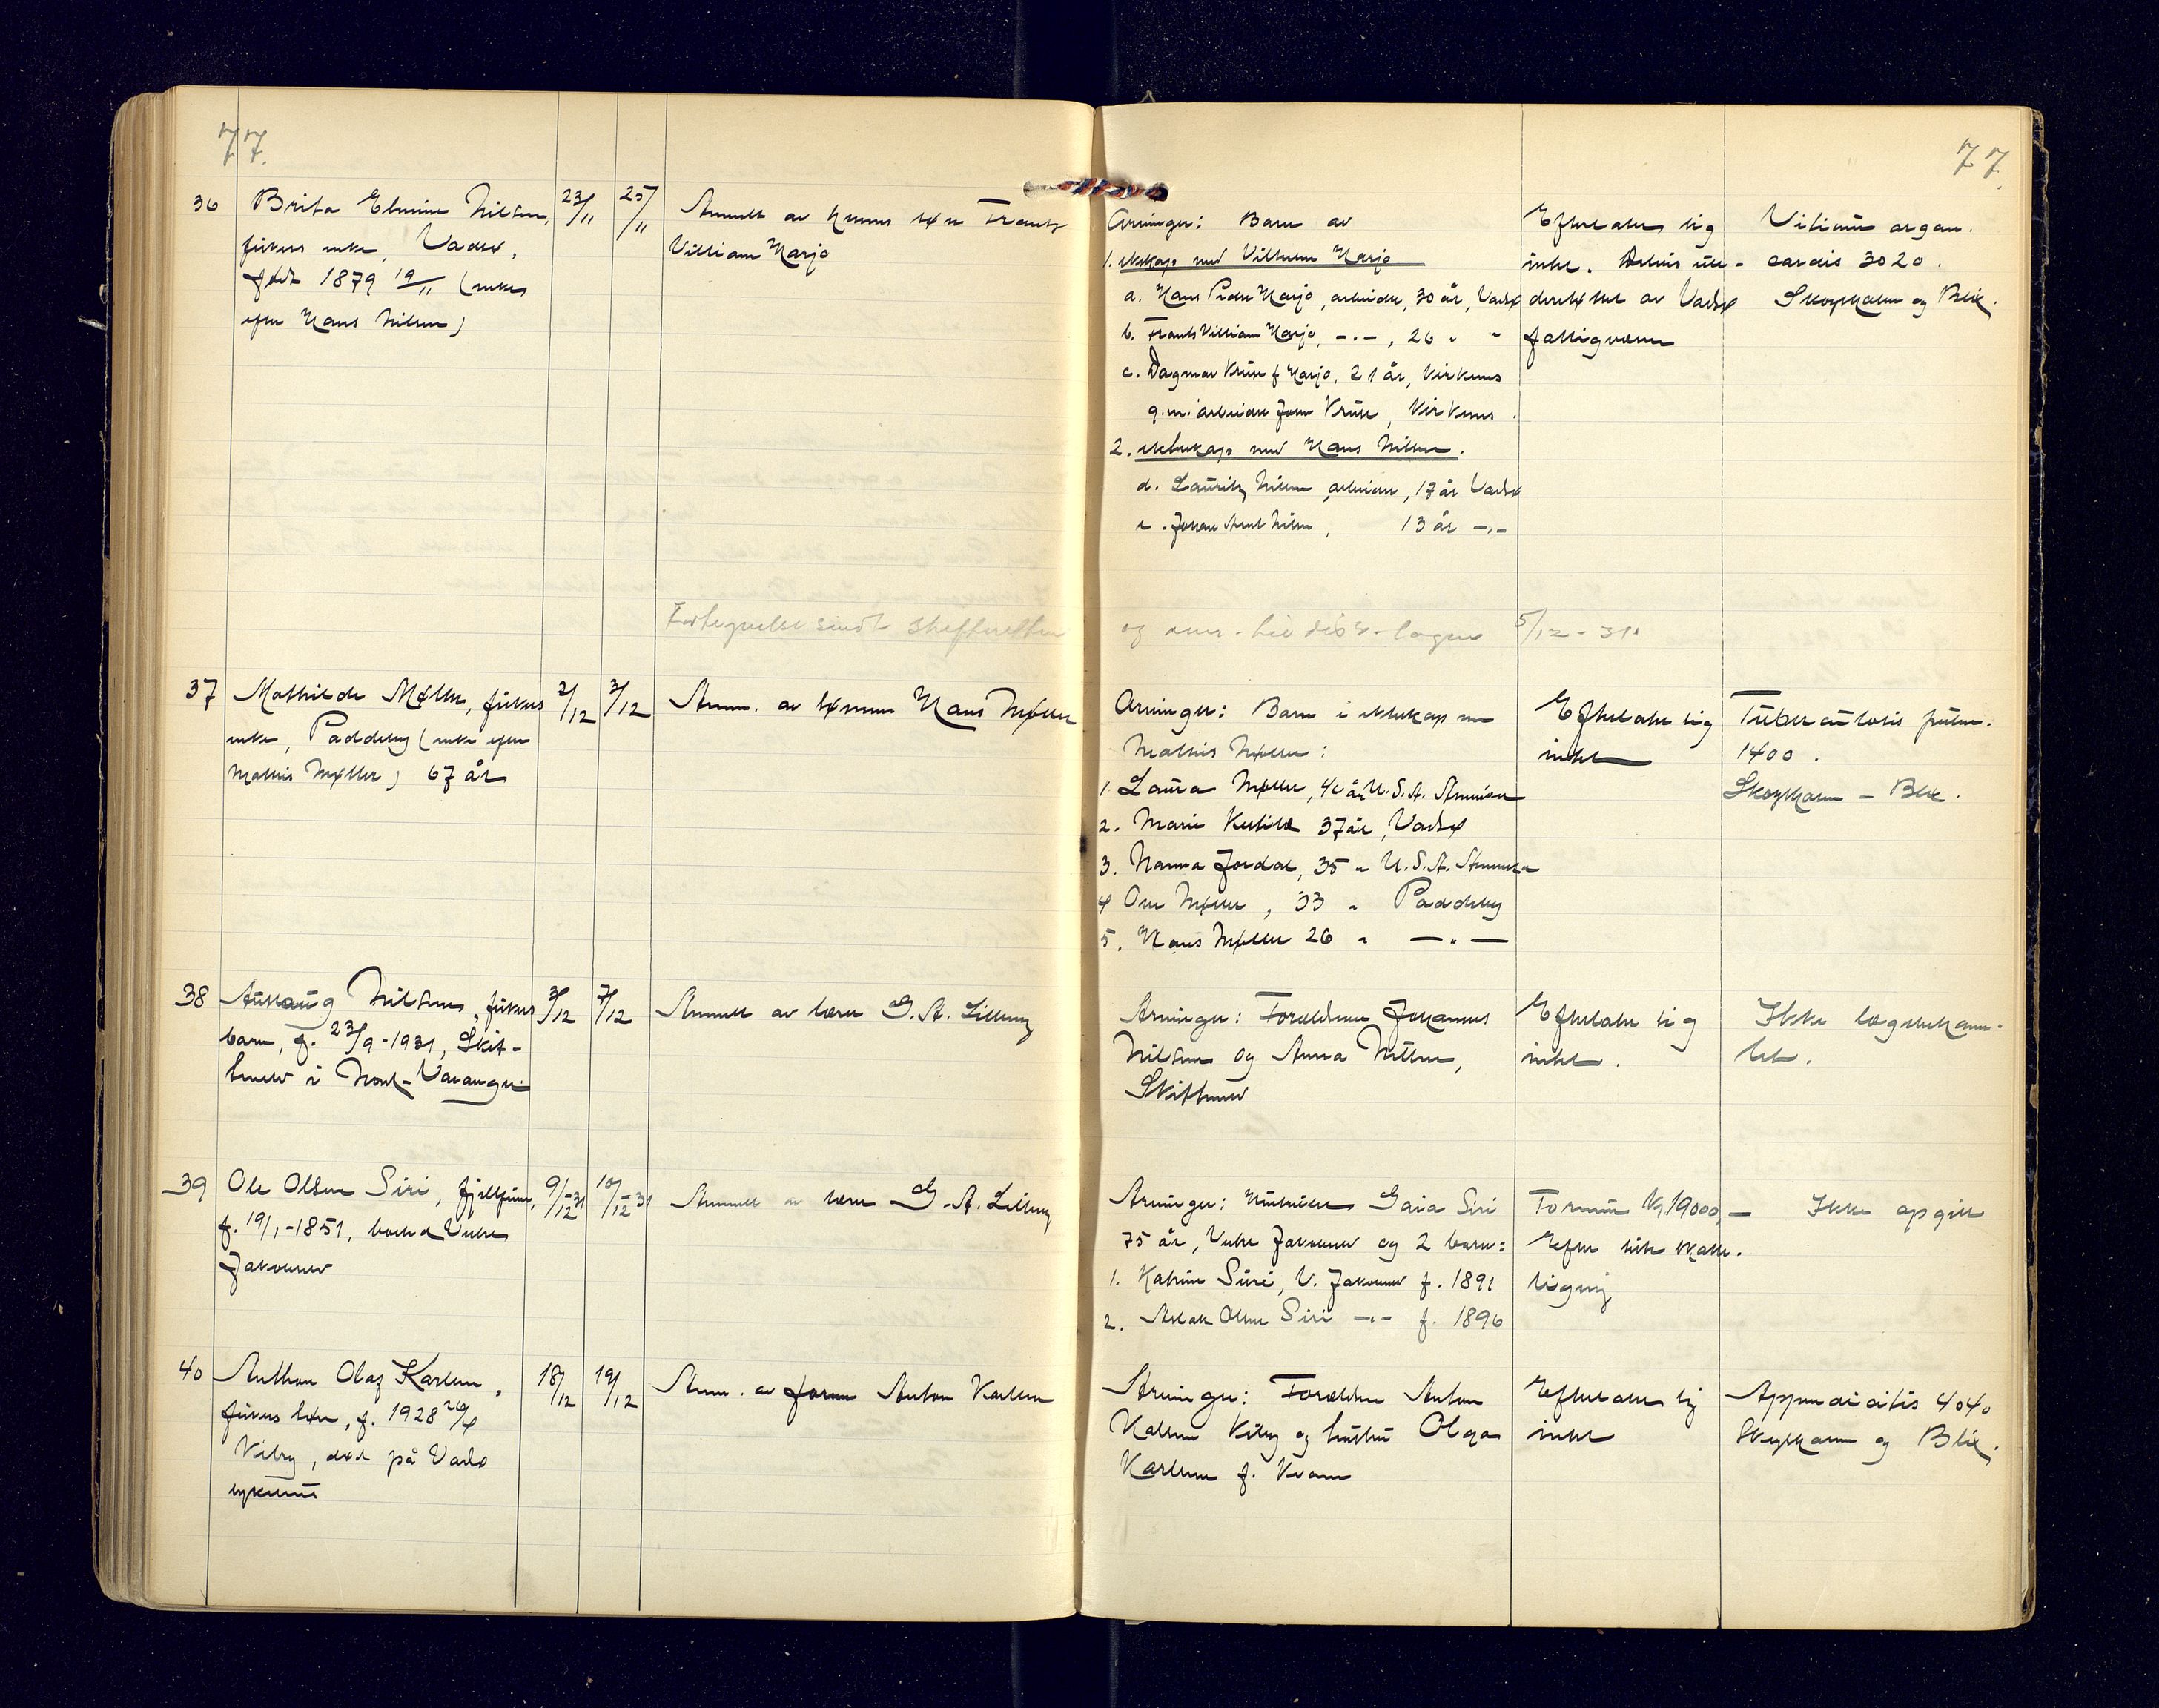 77.
77.
36
Brita Elmine Nilsen,
fiskers enke, Vadsø,
født 1879 19/11 (enke
efter Hans Nilsen)
23/11
25/11
Anmeldt av hennes søn Frantz
William Marjo
Arvinger: Barn av
1. ekteskap med Vilhelm Marjo
a. Hans Peder Marjo, arbeider, 30 år, Vadsø
b. Frants William Marjo, -"-, 26 " "
c. Dagmar Kruse f Marjo, 21 år, Kirkenes
g.m. arbeider John Kruse, Kirkenes.
2. ekteskap med Hans Nilsen.
d. Lauritz Nilsen, arbeider, 17 år Vadsø
e. Johan Nilsen, 13 år -"-
Efterlater sig
intet. Delvis under-
av Vadsø
fattigvæsen
Vitium organ.
cordis 3020.
Skogsholm og Blix.
Fortegnelse sendt skifteretten
og 5/12-31.
37
Mathilde Møller, fiskers
enke, Paddeby (enke efter
Mathis Møller) 67 år
2/12
3/12
Anm. av sønnen Hans Møller
Arvinger: Barn i ekteskap med
Mathis Møller:
1. Laura Møller, år U.S.A. Amerika
2. Marie 37 år, Vadsø
3. Hanna Jordal, 35 " U.S.A. Amerika
4 Ole Møller, 33 " Paddeby
5. Hans Møller 26 " -"-
Efterlater sig
intet
Tuberculosis pulm.
1400.
Skogsholm - Blix.
38
Aslaug Nilsen, fiskers
barn, f. 23/9-1931, Skit-
i Nord-Varanger
3/12
7/12
Anmeldt av lærer G. A. Lilleng
Arvinger: Forældrene Johannes
Nilsen og Anna Nilsen,
Efterlater sig
intet.
Ikke lægebehand-
let.
39
Ole Olsen Siri, fjellfinn,
f. 19/1-1851, Vestre
Jakobselv
9/12-31
10/12-31
Anmeldt av lærer G. A. Lilleng
Arvinger: Hustruen Gaia Siri
75 år, Vestre Jakobselv og 2 barn:
1. Katrine Siri, V. Jakobselv f. 1891
2. Aslak Olsen Siri -"- f. 1896
Formue Kr. 19000,-
Efter siste skatte-
ligning
Ikke opgitt
40
Anthon Olaf Karlsen,
fiskers søn, f. 1928 26/4
Kiby, død på Vadsø
sykehus
18/12
19/12
Anm. av faren Anton Karlsen
Arvinger: Forældrene Anton
Karlsen Kiby og hustru Olga
Karlsen f. Kvam
Efterlater sig
intet
Appendicitis 4040
Skogsholm og Blix.